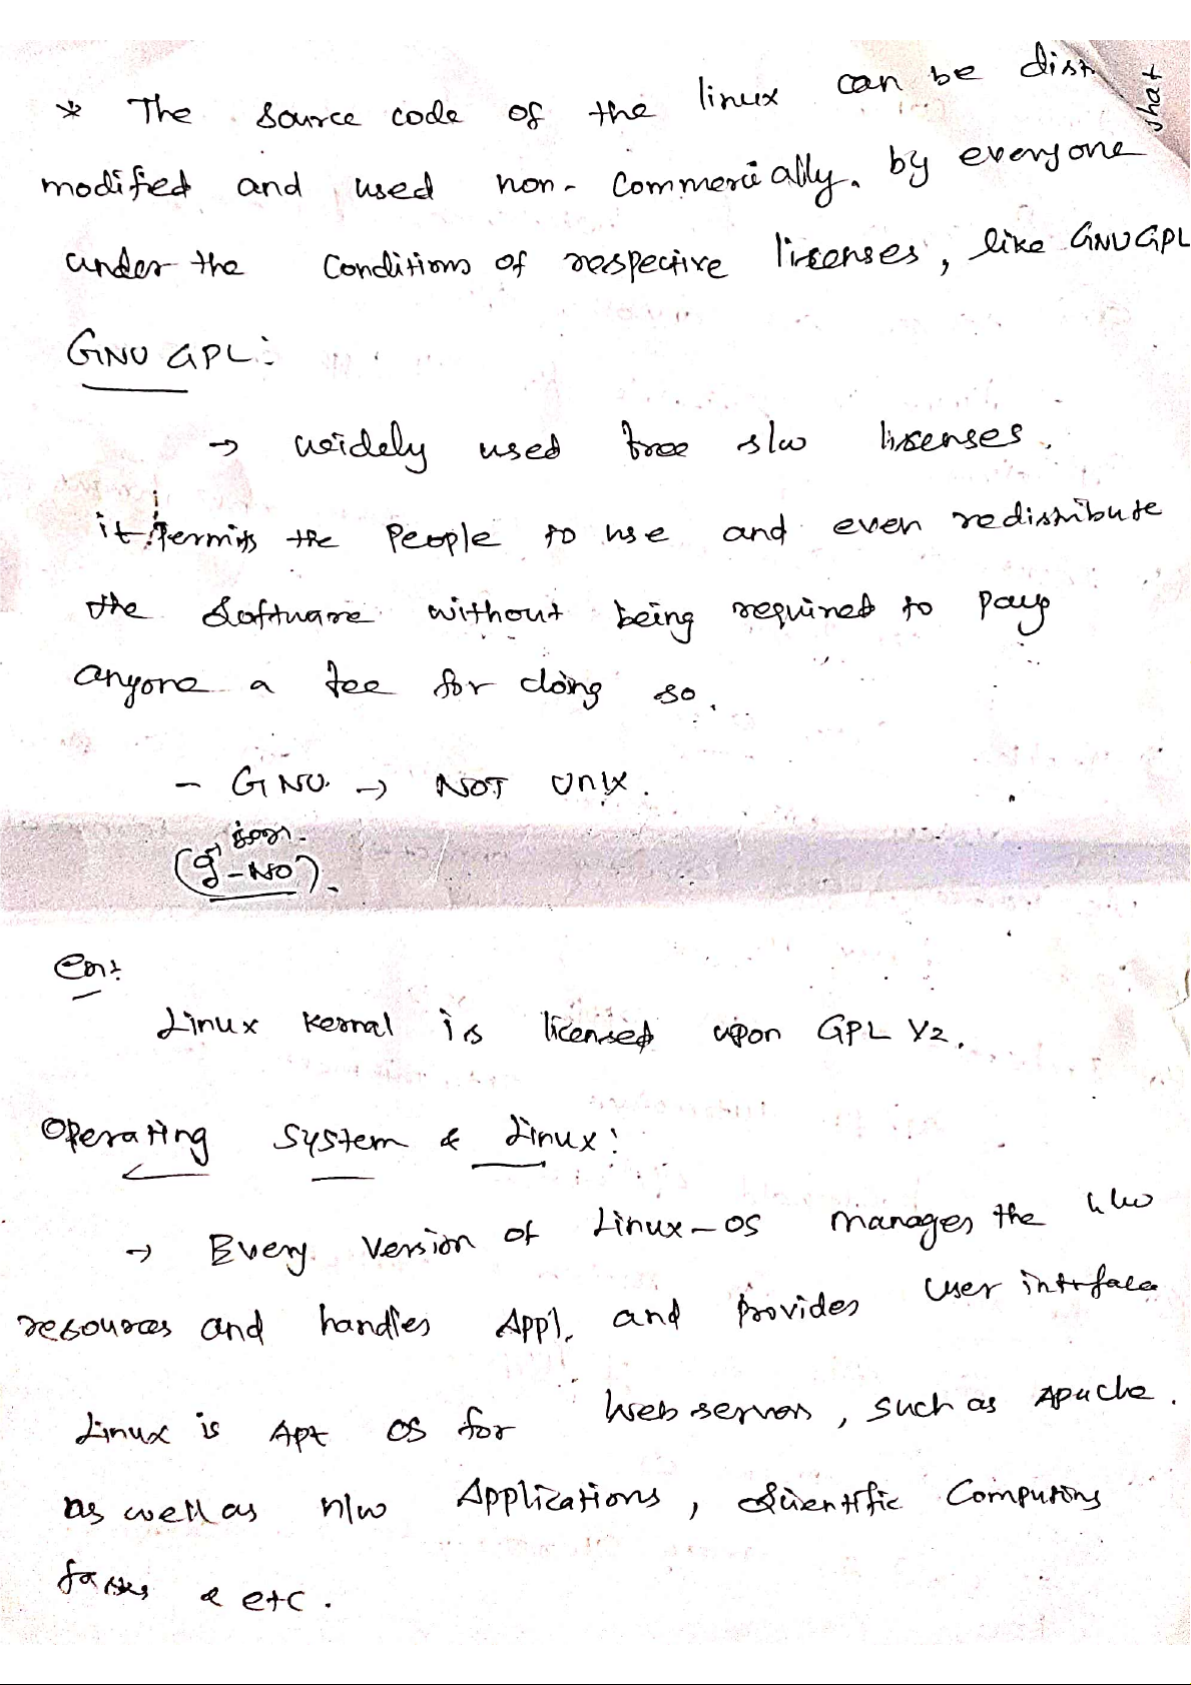 * The source code of the linux can be dist
shat
modified and used non-commercially. by everyone
under the conditions of respective licenses, like GNU GPL
GNU GPL:
→ widely used free s/w licenses.
it permits the people to use and even redistribute
the software without being required to pay
anyone a fee for doing so.
- GNU → NOT Unix.
(g'-NO).
Ex:
Linux kernal is licensed upon GPL V2.
Operating System & Linux:
→ Every version of Linux-OS manages the h/w
resources and handles Appl. and provides user intrface
Linux is Apt OS for Web servers, such as Apache.
as well as n/w Applications, scientific Computing
& etc.